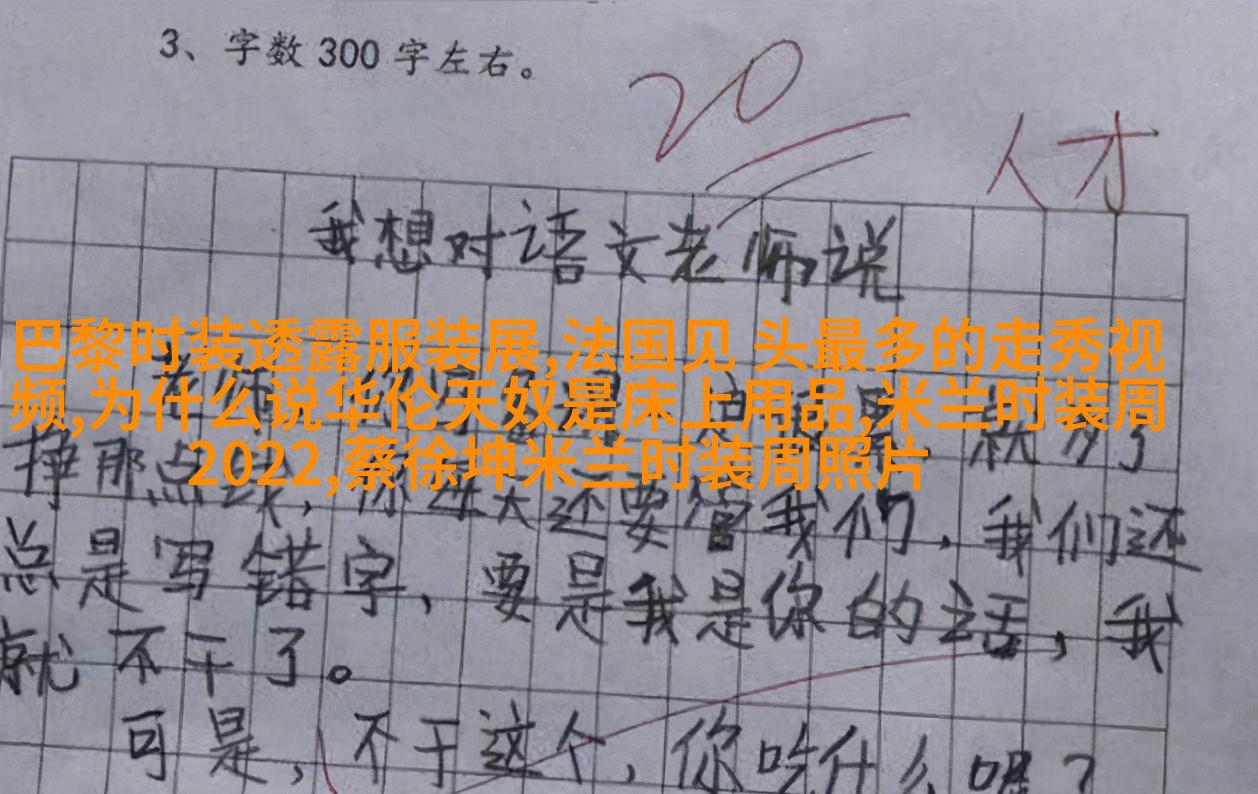 3、字数 300 字左右。
20
人才
我想对语文老师说
巴黎时装透露服装展,法国见 头最多的走秀视
频,为什么说华伦天奴是床上用品,米兰时装周
2022,蔡徐坤米兰时装周照片
挣那点钱，你还要管我们，我们还
总是写错字，要是我是你的话，我
就不干了。
可是，不干这个，你吃什么呢？